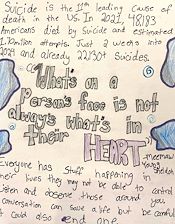 Suicide is the 11th leading cause of
death in the US. In 2021, 48183
Americans died by Suicide and estimated
1.70million attempts. Just 2 weeks into
2024 and already 22,130+ Suicides.
"What's on a
Person's face is not
always what's in
their HEART"
-meemaw
Young
Sheldon
Everyone has stuff happening in
their lives they may not be able to control
Listen and observe those around you
conversation can save a life but be careful
it could also end one